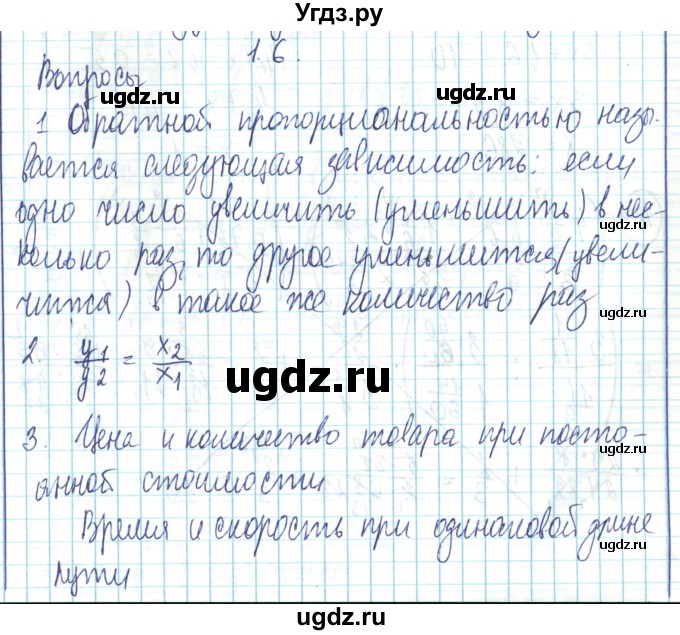 Угдз.ру
1.6.
Вопросы
ugdz.ru
ugdz.ru
1 Обратной пропорциональностью назы-
вается следующая зависимость: если
ugdz.ru
одно число увеличить (уменьшить) в нес-
ugdz.ru
колько раз, то другое уменьшится (увели-
чится) в такое же количество раз
ugdz.ru
2. y1/y2 = x2/x1
ugdz.ru
3. Цена и количество товара при посто-
янной стоимости
ugdz.ru
Время и скорость при одинаковой длине
ugdz.ru
пути
ugdz.ru
ugdz.ru